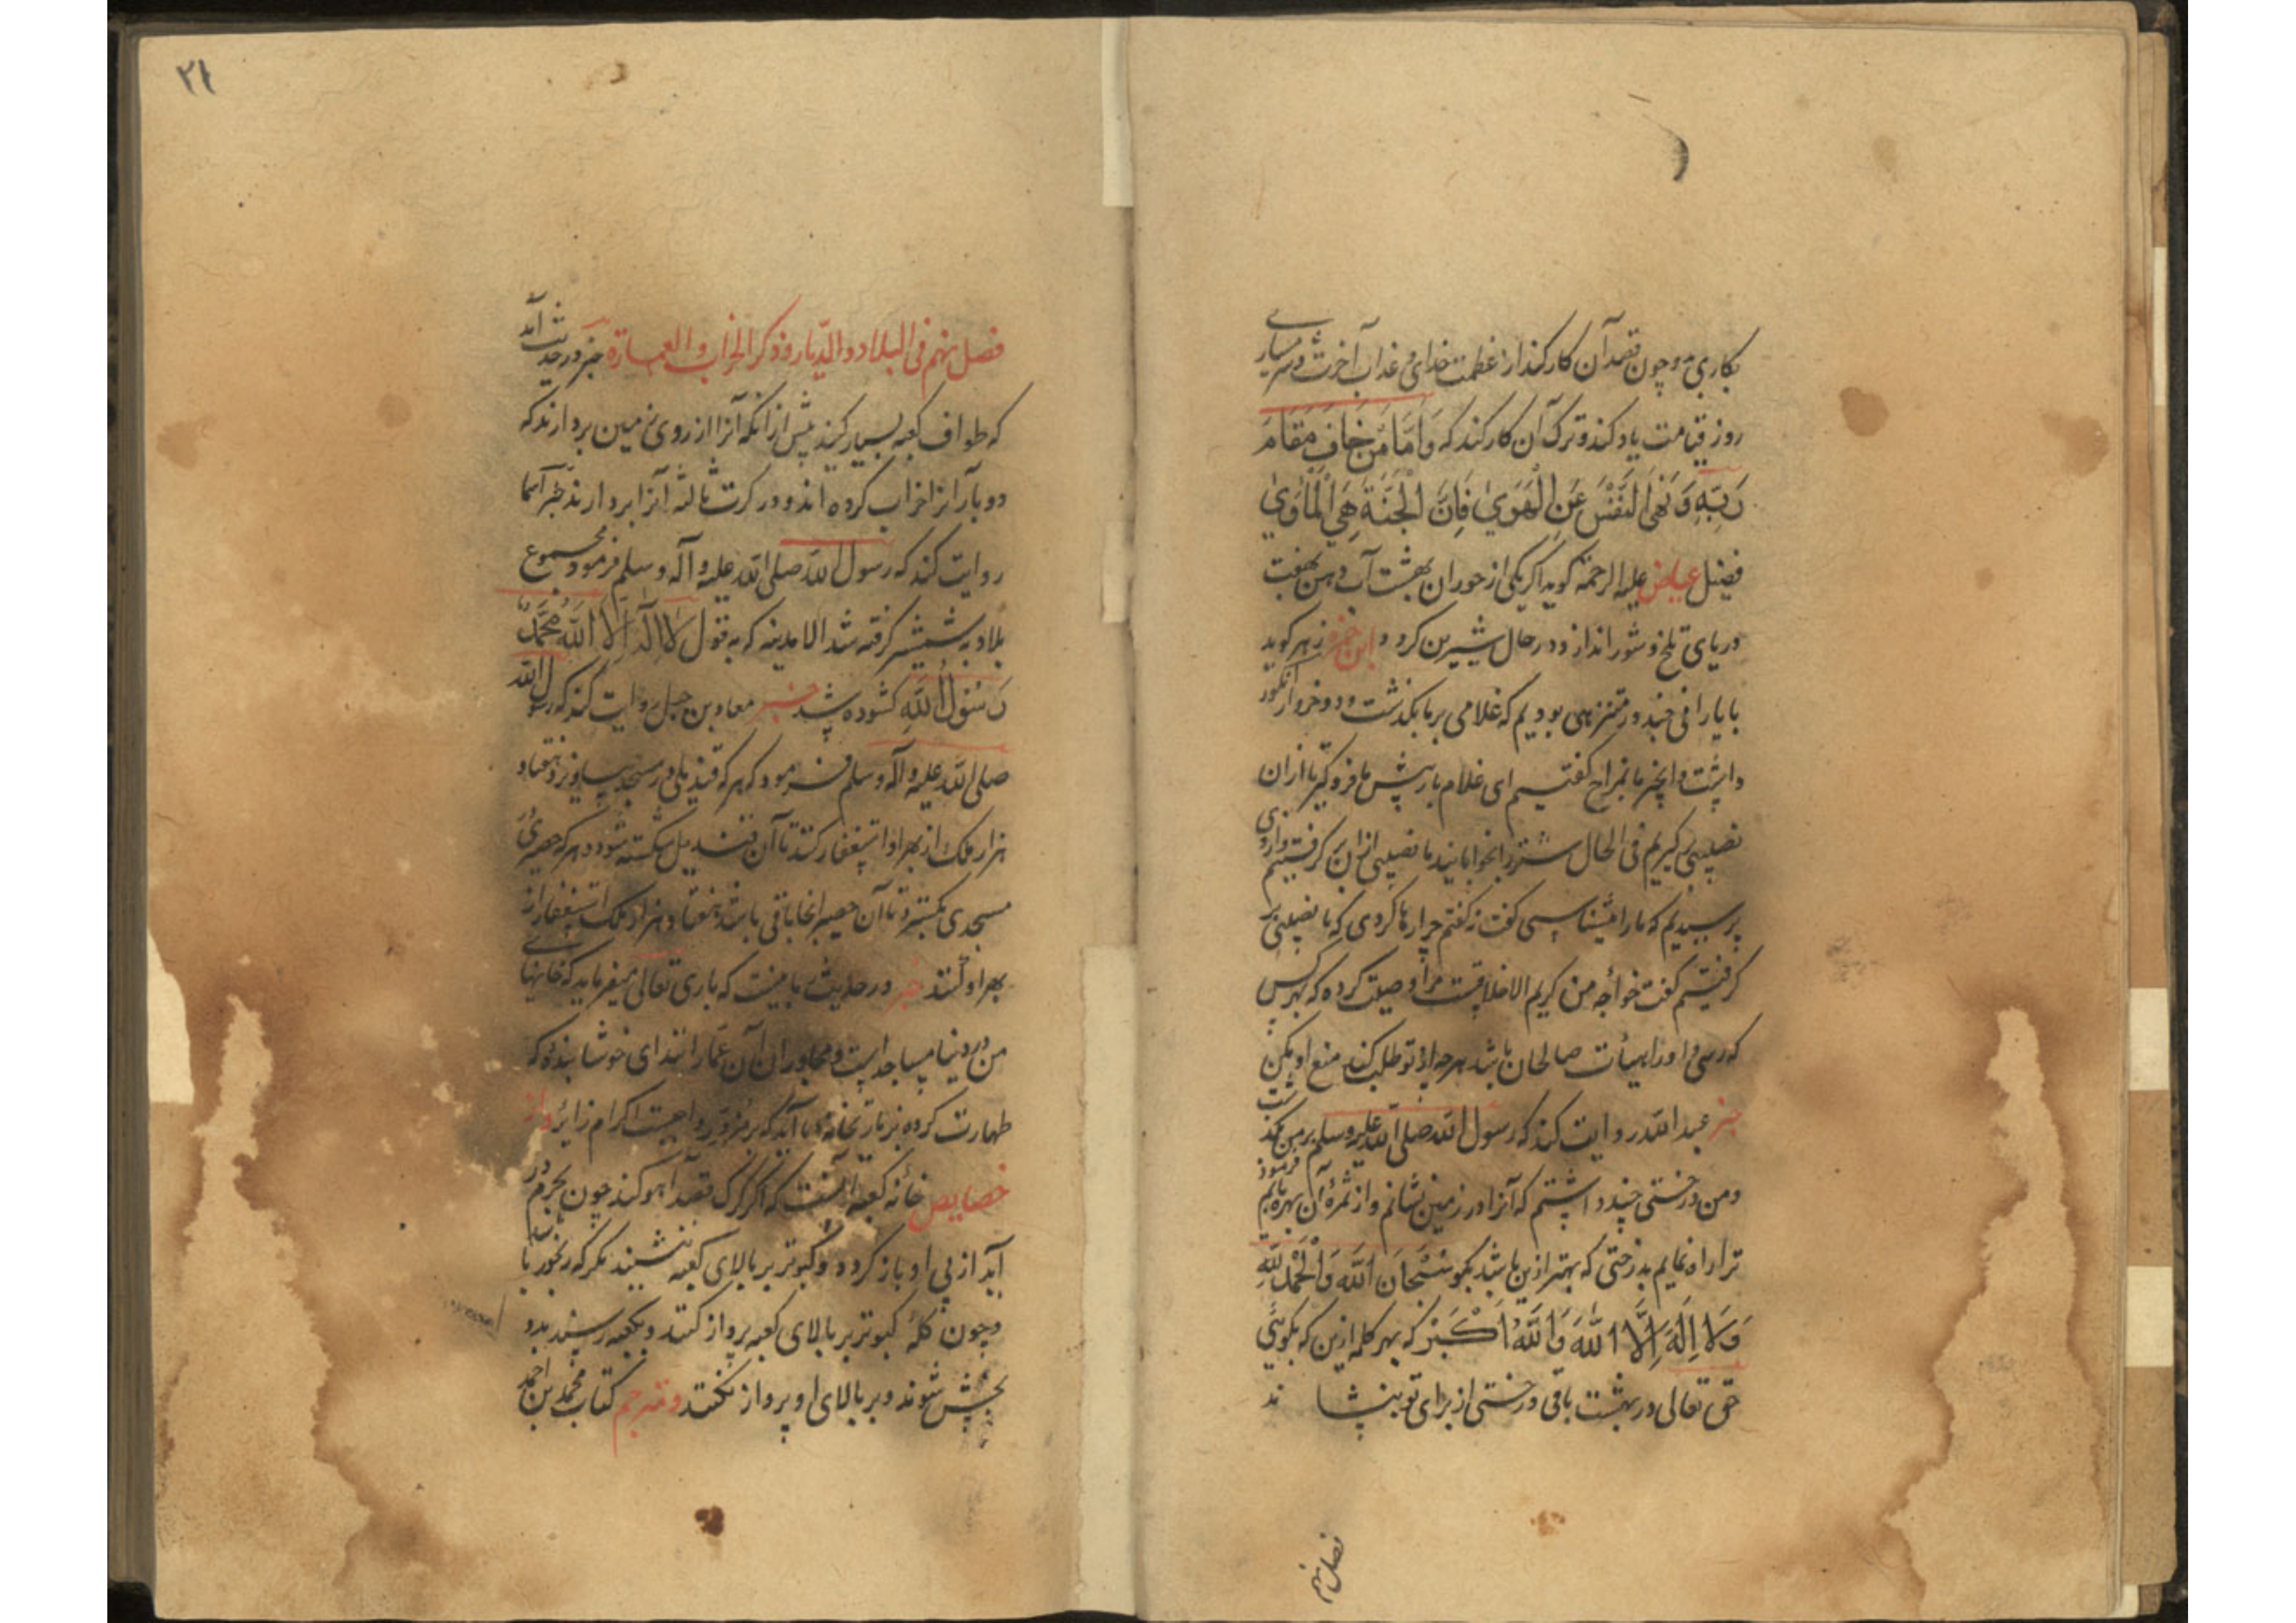 بکاری و چون قصد آن کار کند از عظمت خدای و عذاب آخرت و شرمساری
روز قیامت یاد کند و ترک آن کار کند که وَاَمَّا مَنْ خَافَ مَقَامَ
رَبِّهِ وَنَهَى النَّفْسَ عَنِ الْهَوَىٰ فَاِنَّ الْجَنَّةَ هِيَ الْمَأْوَىٰ
فضیل عیاض علیه الرحمة کوید اکر یکی از حوران بهشت آب دهن بهفت
دریای تلخ و شور اندازد در حال شیرین کردد زهر کوید
با یارانی چند در متنزهی بودیم که غلامی بر ما بکذشت و دو خروار انکور
داشت و انجیر ما بمزاح کفتیم ای غلام بار پیش ما فرو کیر تا ازان
نصیبی کیریم فی الحال شتر را بخوابانید ما نصیبی ازان بر کرفتیم
پرسیدیم که ما را میشناسی کفت نه کفتم چرا رها کردی که ما نصیبی بر
کرفتیم کفت خواجه من کریم الاخلاقست مرا وصیت کرده که بهر کس
که رسی و او را هیأت صالحان باشد هر چه از تو طلب کند منع او مکن
خبر عبدالله روایت کند که رسول الله صلی الله علیه وسلم بر من بکذشت
ومن درختی چند داشتم که آنرا در زمین نشانم واز ثمرهٔ آن بهره یابم فرمود
ترا راه نمایم بدرختی که بهتر ازین باشد بکو سُبْحَانَ اللّٰهِ وَالْحَمْدُ لِلّٰهِ
وَلَا اِلٰهَ اِلَّا اللّٰهُ وَاللّٰهُ اَکْبَرُ که بهر کلمه ازین که بکویی
حق تعالی در بهشت باقی درختی از برای تو بنشاند
فصل نهم
۲۱
فصل نهم فی البلاد والدّیار وذکر الخراب والعمارة خبر در حدیث آمد
که طواف کعبه بسیار کنید پیش از آنکه آنرا از روی زمین بردارند که
دو بار آنرا خراب کرده اند و در کرت ثالثه آنرا بردارند خبر اسما
روایت کند که رسول الله صلی الله علیه وآله وسلم فرمود مجموع
بلاد بشمشیر کرفته شد الا مدینه که به قول لَا اِلٰهَ اِلَّا اللّٰهُ مُحَمَّدٌ
رَسُولُ اللّٰهِ کشوده شد خبر معاذ بن جبل روایت کند که رسول الله
صلی الله علیه وآله وسلم فرمود که هر که قندیلی در مسجد بیاویزد هفتاد
هزار ملک از بهر او استغفار کنند تا آن قندیل شکسته شود و هر که حصیری در
مسجدی بکسترد تا آن حصیر انجا باقی باشد هفتاد هزار ملک استغفار از
بهر او کنند خبر در حدیث که باری تعالی میفرماید که خانهای
من در دنیا مساجد است و مجاوران آن عمّار انند ای خوشا بنده که
طهارت کرده بزیارت خانه ما آید که بر مزور واجبست اکرام زایر واز
خصایص خانه کعبه آنست که اکر کرک قصد آهو کند چون بحرم در
آید از پی او باز کردد و کبوتر بر بالای کعبه ننشیند مکر که رنجور باشد
وچون کله کبوتر بر بالای کعبه پرواز کنند و بکعبه رسند بدو
بخش شوند و بر بالای او پرواز نکنند و مترجم کتاب محمد بن احمد